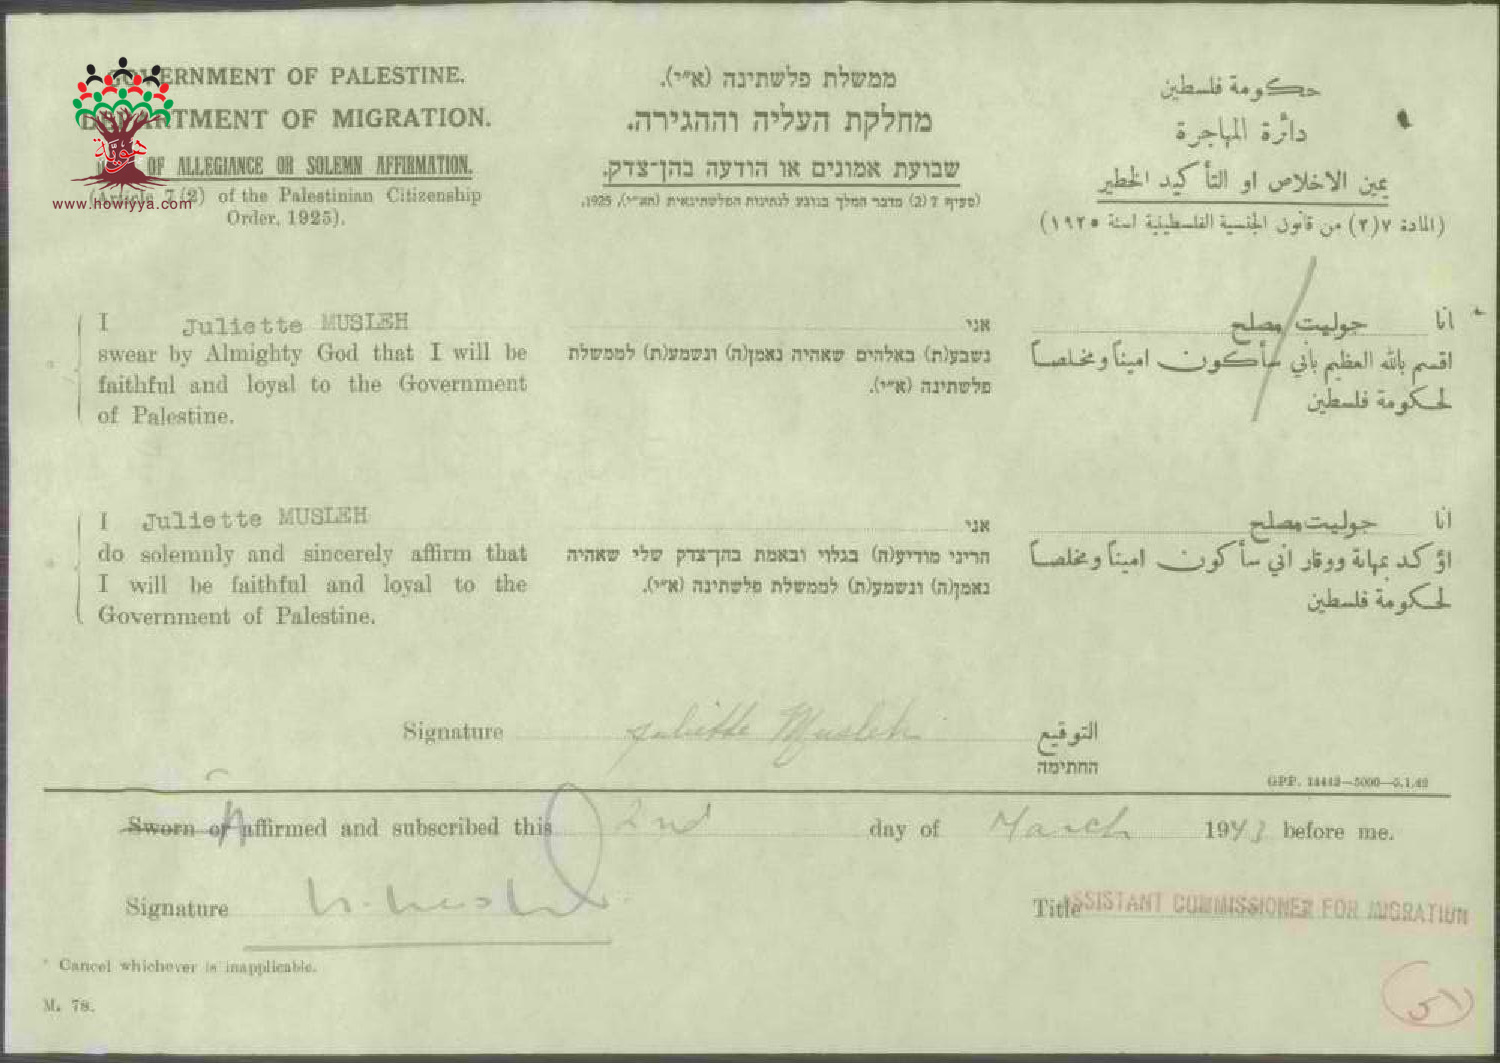 GOVERNMENT OF PALESTINE.
DEPARTMENT OF MIGRATION.
OF ALLEGIANCE OR SOLEMN AFFIRMATION.
(Article 7(2) of the Palestinian Citizenship
Order, 1925).
هوية
www.howiyya.com
ממשלת פלשתינה (א״י).
מחלקת העליה וההגירה.
שבועת אמונים או הודעה בהן־צדק.
(סעיף 7 (2) מדבר המלך בנוגע לנתינות הפלשתינאית (תא״י), 1925.
حكومة فلسطين
دائرة المهاجرة
يمين الاخلاص او التأكيد الخطير
(المادة ٧(٢) من قانون الجنسية الفلسطينية لسنة ١٩٢٥)
I Juliette MUSLEH
swear by Almighty God that I will be
faithful and loyal to the Government
of Palestine.
אני
נשבע(ת) באלהים שאהיה נאמן(ה) ונשמע(ת) לממשלת
פלשתינה (א״י).
انا جوليت مصلح
اقسم بالله العظيم بأني سأكون اميناً ومخلصاً
لحكومة فلسطين
I Juliette MUSLEH
do solemnly and sincerely affirm that
I will be faithful and loyal to the
Government of Palestine.
אני
הריני מודיע(ה) בגלוי ובאמת בהן־צדק שלי שאהיה
נאמן(ה) ונשמע(ת) לממשלת פלשתינה (א״י).
انا جوليت مصلح
اؤكد بمهابة ووقار اني سأكون اميناً ومخلصاً
لحكومة فلسطين
Signature Juliette Musleh التوقيع
החתימה
GPP. 14442—5000—5.1.42
Sworn or Affirmed and subscribed this 2nd day of March 1943 before me.
Signature
Title ASSISTANT COMMISSIONER FOR MIGRATION
* Cancel whichever is inapplicable.
M. 78.
51